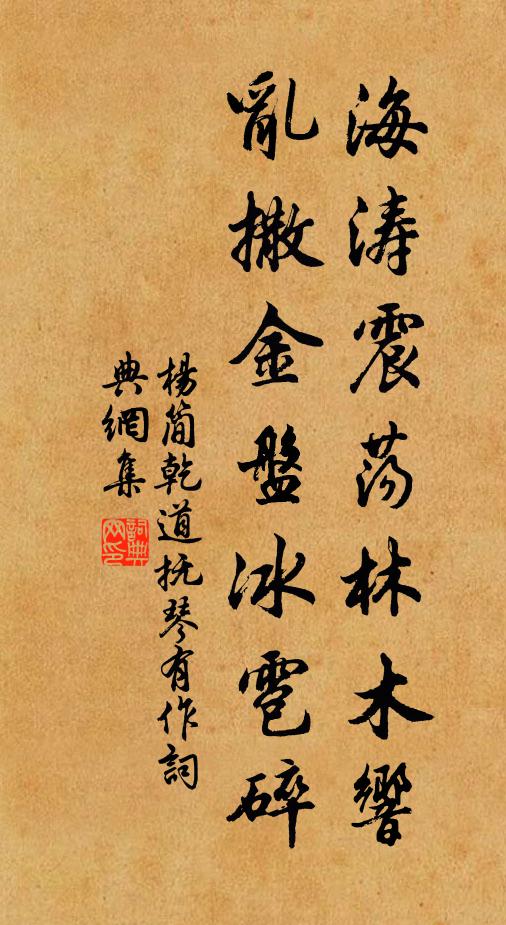 海涛震荡林木響
亂撒金盤冰雹碎
楊簡乾道抚琴有作詞
典網集
詞典网印